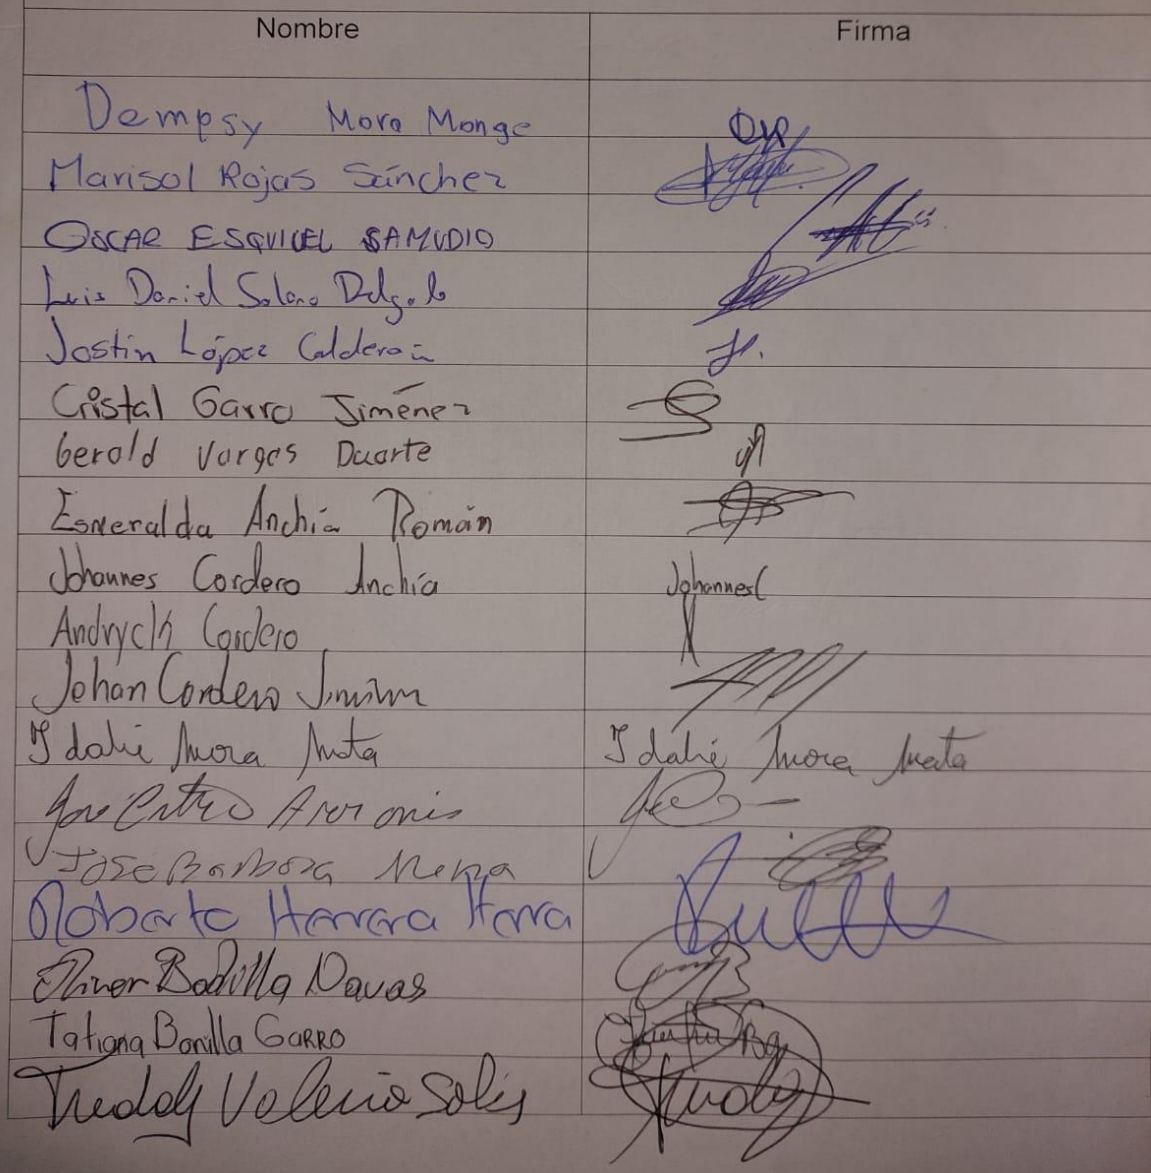 Nombre Firma
Dempsy Mora Monge
Marisol Rojas Sánchez
OSCAR ESQUIVEL SAMUDIO
Luis Daniel Solano Delgado
Jostin López Calderón
Cristal Garro Jiménez
Gerald Vargas Duarte
Esmeralda Anchía Román
Johannes Cordero Anchía Johannes C
Andryck Cordero
Johan Cordero
Idalie Mora Mata Idalie Mora Mata
José
José Barboza Mena
Roberto Herrera Herra
Bonilla Navas
Tatiana Bonilla GARRO
Freddy Valerio Solis Freddy